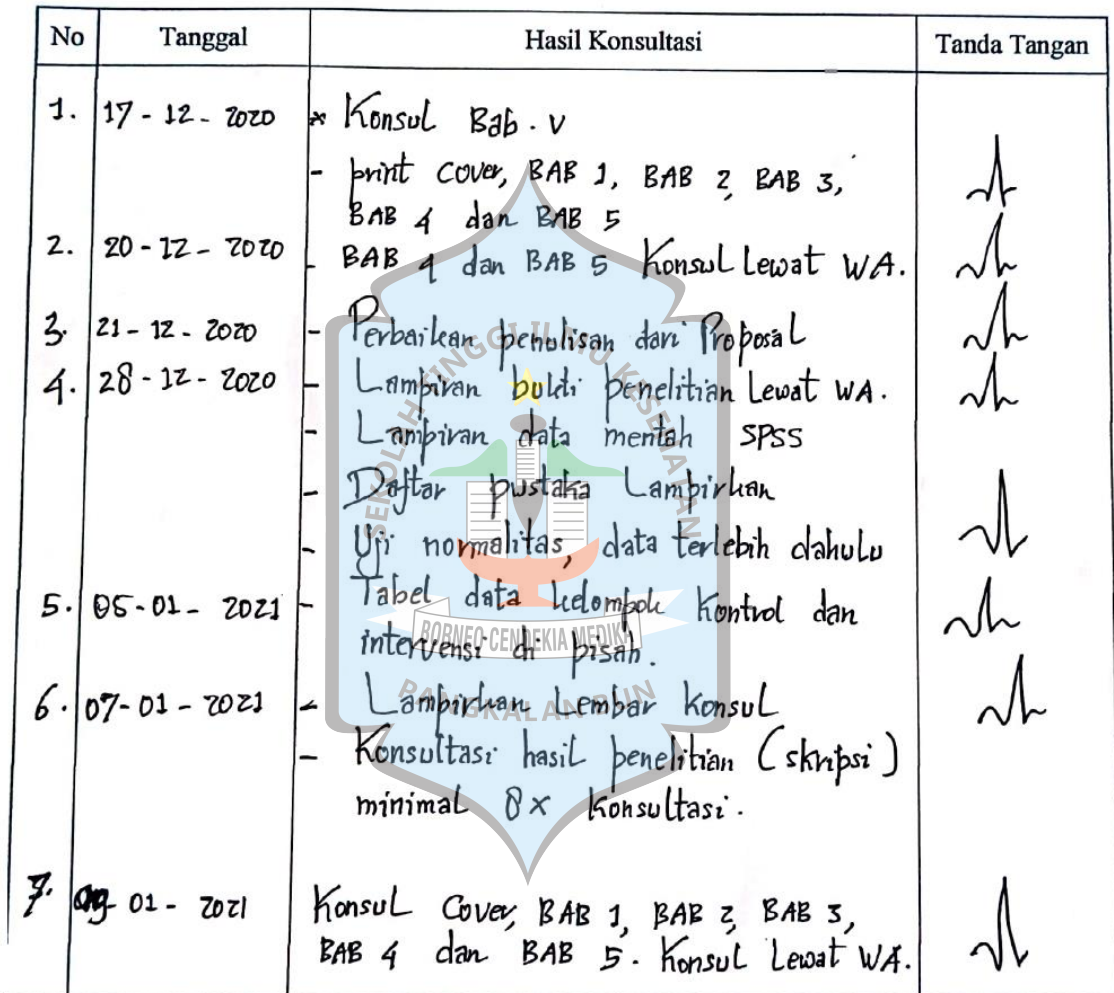 No Tanggal Hasil Konsultasi Tanda Tangan
1. 17 - 12 - 2020 * Konsul Bab. V
- print cover, BAB 1, BAB 2, BAB 3,
BAB 4 dan BAB 5
2. 20 - 12 - 2020 - BAB 4 dan BAB 5 Konsul Lewat WA.
3. 21 - 12 - 2020 - Perbaikan penulisan dari Proposal
4. 28 - 12 - 2020 - Lampiran bukti penelitian Lewat WA.
- Lampiran data mentah SPSS
- Daftar pustaka Lampirkan
- Uji normalitas, data terlebih dahulu
5. 05 - 01 - 2021 - Tabel data kelompok Kontrol dan
intervensi di pisah.
6. 07 - 01 - 2021 - Lampirkan Lembar Konsul
- Konsultasi hasil penelitian (skripsi)
minimal 8x Konsultasi.
7. 01 - 2021 Konsul Cover, BAB 1, BAB 2, BAB 3,
BAB 4 dan BAB 5. Konsul Lewat WA.
SEKOLAH TINGGI ILMU KESEHATAN
BORNEO CENDEKIA MEDIKA
PANGKALAN BUN